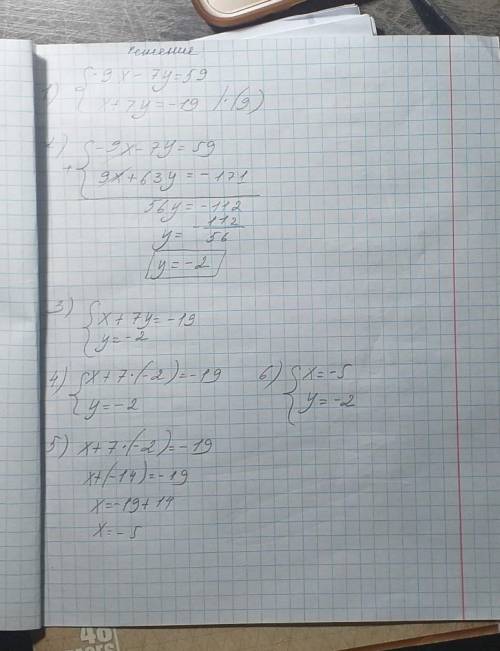 Решение
1) { -9x - 7y = 59
{ x + 7y = -19 | · (9)
2) + { -9x - 7y = 59
{ 9x + 63y = -171
56y = -112
y = - 112/56
y = -2
3) { x + 7y = -19
{ y = -2
4) { x + 7 · (-2) = -19
{ y = -2
5) x + 7 · (-2) = -19
x + (-14) = -19
x = -19 + 14
x = -5
6) { x = -5
{ y = -2